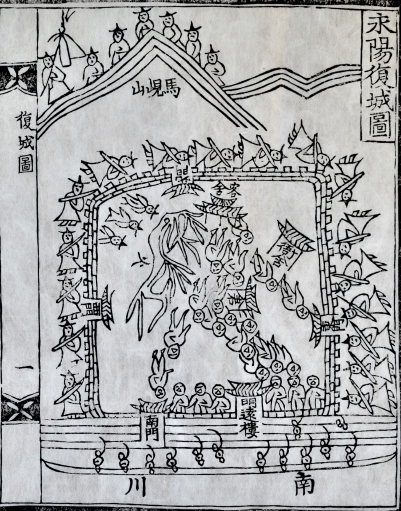 永陽復城圖
馬峴山
客舍
明遠樓
南門
南川
復城圖
一